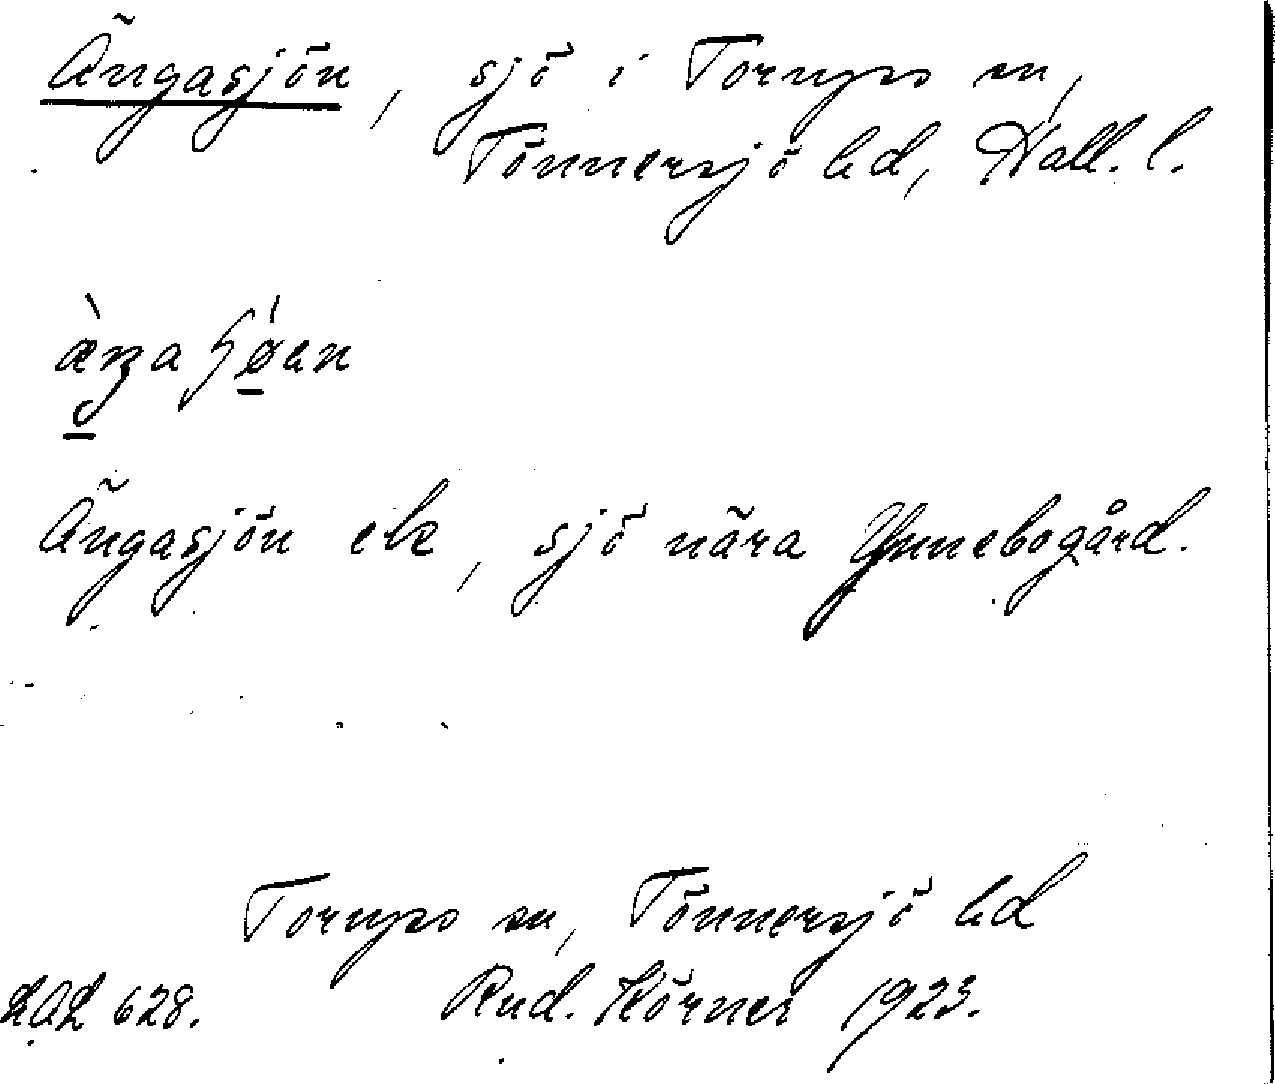 Ängasjön, sjö i Torups sn,
Tönnersjö hd, Hall. l.
Ängasjön ek, sjö nära Ynnebogård.
Torups sn, Tönnersjö hd
LAL 628. Rud. Körner 1923.